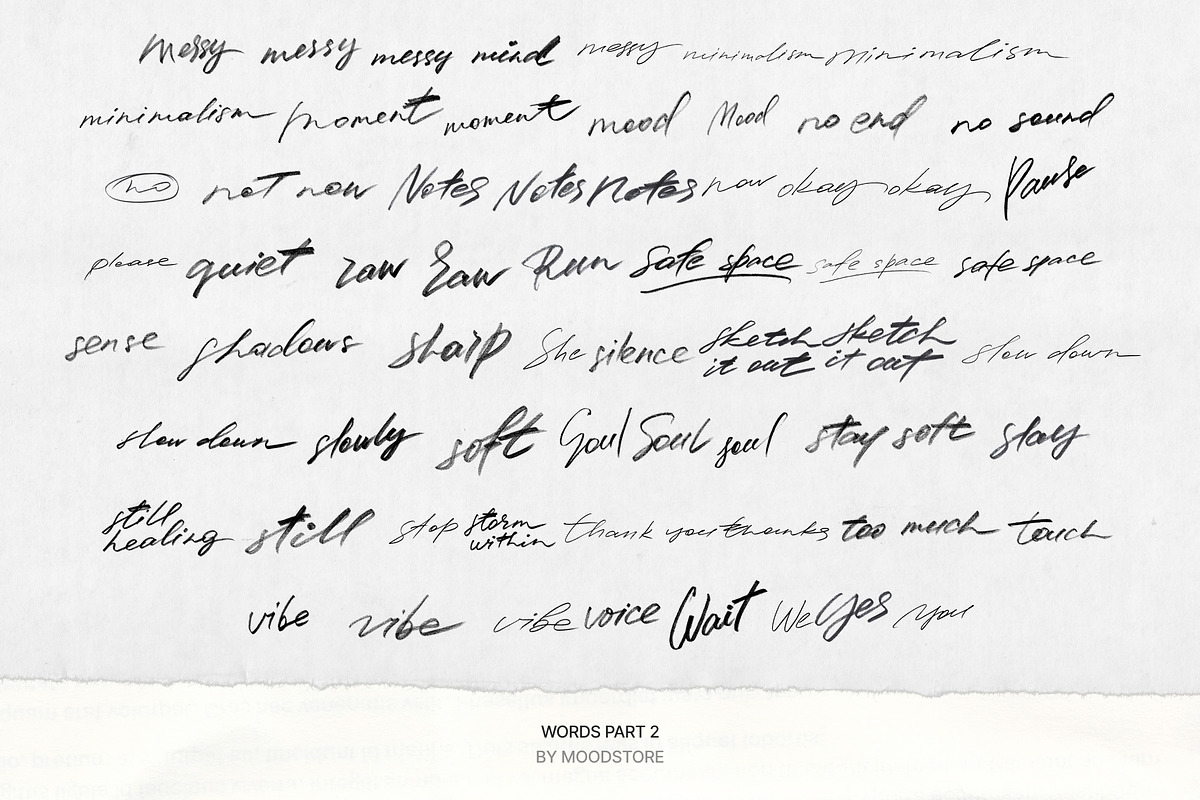 Messy messy messy mind messy minimalism minimalism
minimalism moment moment mood Mood no end no sound
no not now Notes Notes Notes now okay okay Pause
please quiet raw Raw Run Safe space safe space safe space
sense shadows sharp She silence sketch it out sketch it out slow down
slow down slowly soft Soul Soul soul stay soft stay
still healing still stop storm within thank you thanks too much touch
vibe vibe vibe voice Wait We yes you
WORDS PART 2
BY MOODSTORE